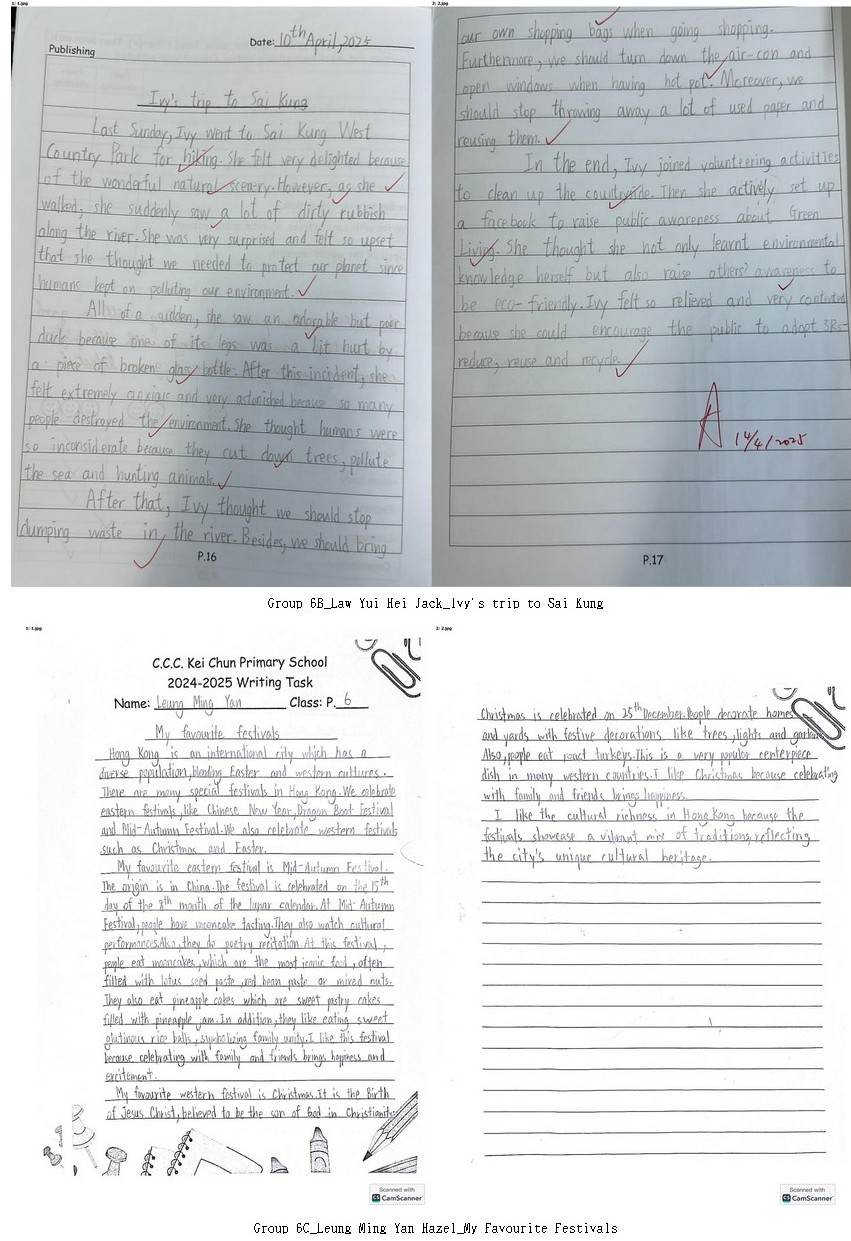 1: 1.jpg
2: 2.jpg
Publishing
Date: 10th April, 2025
Ivy's trip to Sai Kung
Last Sunday, Ivy went to Sai Kung West
Country Park for hiking. She felt very delighted because
of the wonderful natural scenery. However, as she
walked, she suddenly saw a lot of dirty rubbish
along the river. She was very surprised and felt so upset
that she thought we needed to protect our planet since
humans kept on polluting our environment.
All of a sudden, she saw an adorable but poor
duck because one of its legs was a bit hurt by
a piece of broken glass bottle. After this incident, she
felt extremely anxious and very astonished because so many
people destroyed the environment. She thought humans were
so inconsiderate because they cut down trees, pollute
the sea and hunting animals.
After that, Ivy thought we should stop
dumping waste in the river. Besides, we should bring
P.16
our own shopping bags when going shopping.
Furthermore, we should turn down the air-con and
open windows when having hot pot. Moreover, we
should stop throwing away a lot of used paper and
reusing them.
In the end, Ivy joined volunteering activities
to clean up the countryside. Then she actively set up
a facebook to raise public awareness about Green
Living. She thought she not only learnt environmental
knowledge herself but also raise others' awareness to
be eco-friendly. Ivy felt so relieved and very contented
because she could encourage the public to adopt 3Rs-
reduce, reuse and recycle.
A 14/4/2025
P.17
Group 6B_Law Yui Hei Jack_Ivy's trip to Sai Kung
1: 1.jpg
2: 2.jpg
C.C.C. Kei Chun Primary School
2024-2025 Writing Task
Name: Leung Ming Yan Class: P. 6
My favourite festivals
Hong Kong is an international city which has a
diverse population, blending Easter and western cultures.
There are many special festivals in Hong Kong. We celebrate
eastern festivals, like Chinese New Year, Dragon Boat Festival
and Mid-Autumn Festival. We also celebrate western festivals
such as Christmas and Easter.
My favourite eastern festival is Mid-Autumn Festival.
The origin is in China. The festival is celebrated on the 15th
day of the 8th month of the lunar calendar. At Mid-Autumn
Festival, people have mooncake tasting. They also watch cultural
performances. Also, they do poetry recitation. At this festival,
people eat mooncakes, which are the most iconic food, often
filled with lotus seed paste, red bean paste or mixed nuts.
They also eat pineapple cakes which are sweet pastry cakes
filled with pineapple jam. In addition, they like eating sweet
glutinous rice balls, symbolizing family unity. I like this festival
because celebrating with family and friends brings happiness and
excitement.
My favourite western festival is Christmas. It is the Birth
of Jesus Christ, believed to be the son of God in Christianity.
Scanned with
CS CamScanner
Christmas is celebrated on 25th December. People decorate homes
and yards with festive decorations like trees, lights and garlands.
Also, people eat roast turkeys. This is a very popular centerpiece
dish in many western countries. I like Christmas because celebrating
with family and friends brings happiness.
I like the cultural richness in Hong Kong because the
festivals showcase a vibrant mix of traditions, reflecting
the city's unique cultural heritage.
Scanned with
CS CamScanner
Group 6C_Leung Ming Yan Hazel_My Favourite Festivals